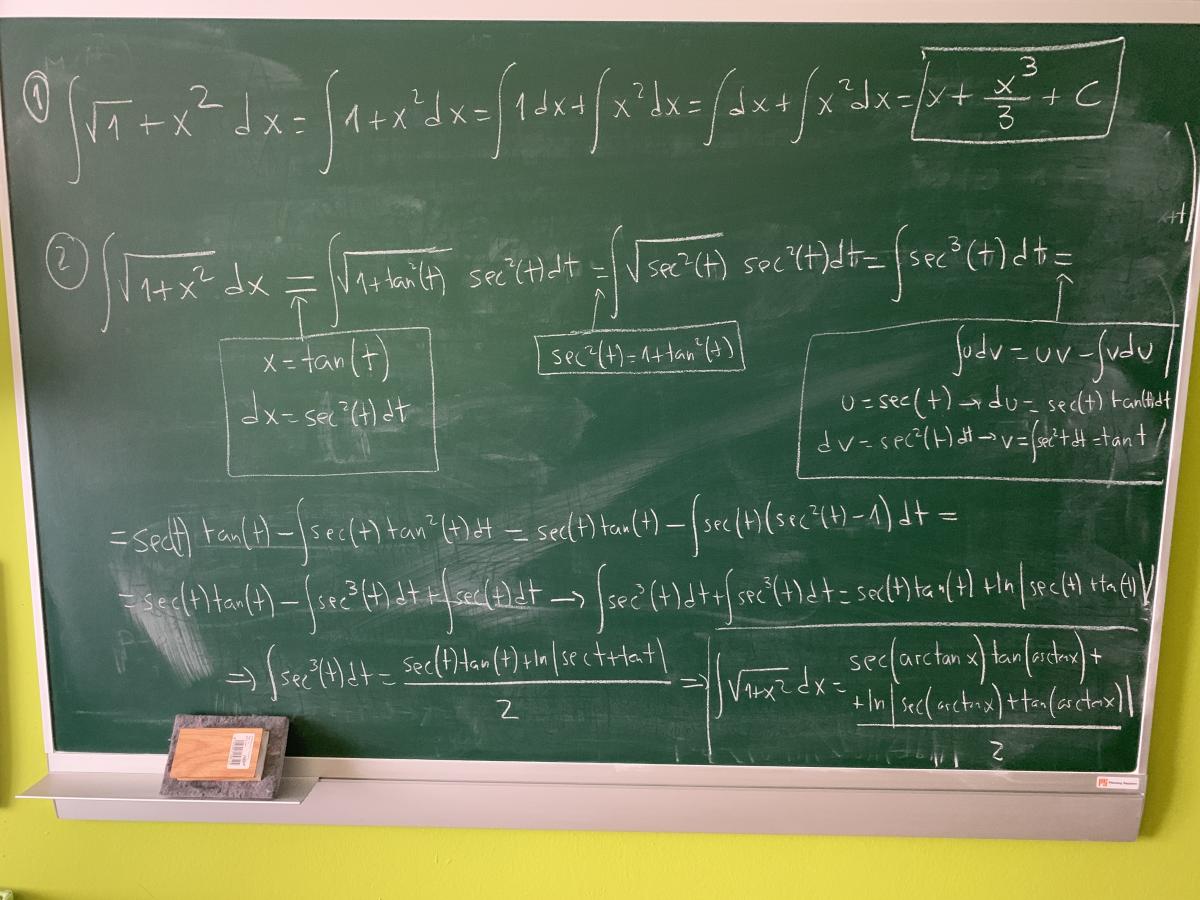 ① ∫√1 + x² dx = ∫1 + x² dx = ∫1dx + ∫x² dx = ∫dx + ∫x² dx = x + x³/3 + C
+t|
② ∫√(1+x²) dx = ∫√(1+tan²(t)) sec²(t) dt = ∫√(sec²(t)) sec²(t) dt = ∫sec³(t) dt =
x = tan(t)
dx = sec²(t) dt
sec²(t) = 1+tan²(t)
∫udv = uv − ∫vdu
u = sec(t) → du = sec(t) tan(t)dt
dv = sec²(t) dt → v = ∫sec²t dt = tan t
= sec(t) tan(t) − ∫sec(t) tan²(t) dt = sec(t) tan(t) − ∫sec(t)(sec²(t) − 1) dt =
= sec(t) tan(t) − ∫sec³(t) dt + ∫sec(t) dt → ∫sec³(t) dt + ∫sec³(t) dt = sec(t) tan(t) + ln|sec(t) + tan(t)|
⇒ ∫sec³(t) dt = (sec(t) tan(t) + ln|sec t + tan t|)/2 ⇒ ∫√(1+x²) dx = sec(arctan x) tan(arctan x) +
+ ln|sec(arctan x) + tan(arctan x)|
2